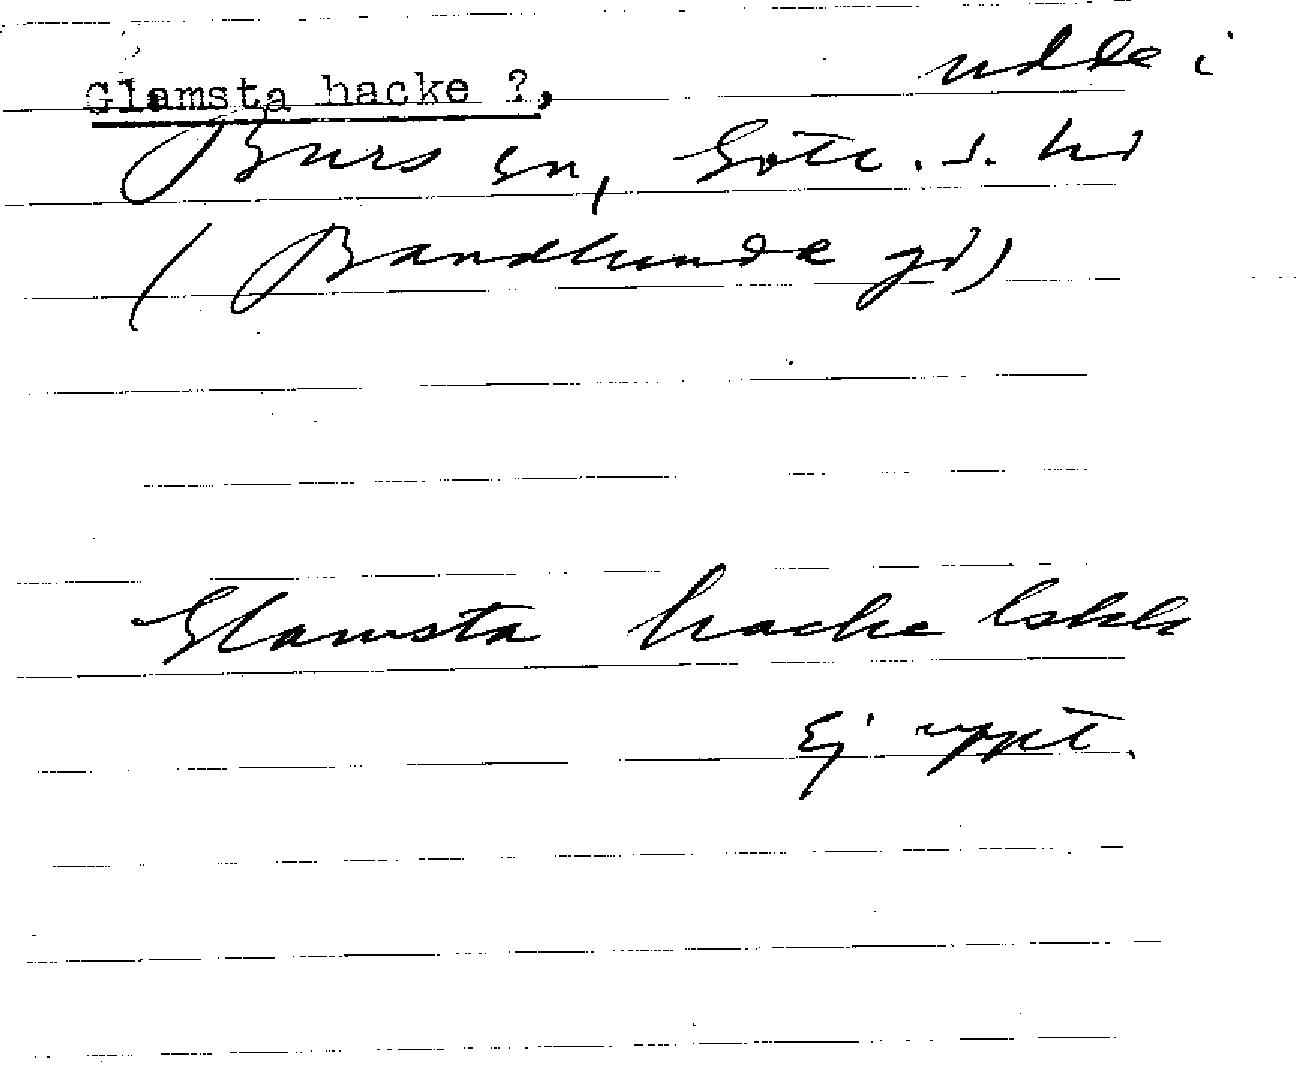 Glamsta hacke ?, udde i
Burs sn, Gotl. s. hd
(Bandlunde gd)
Glamsta hacke lskk
Ej uppt.